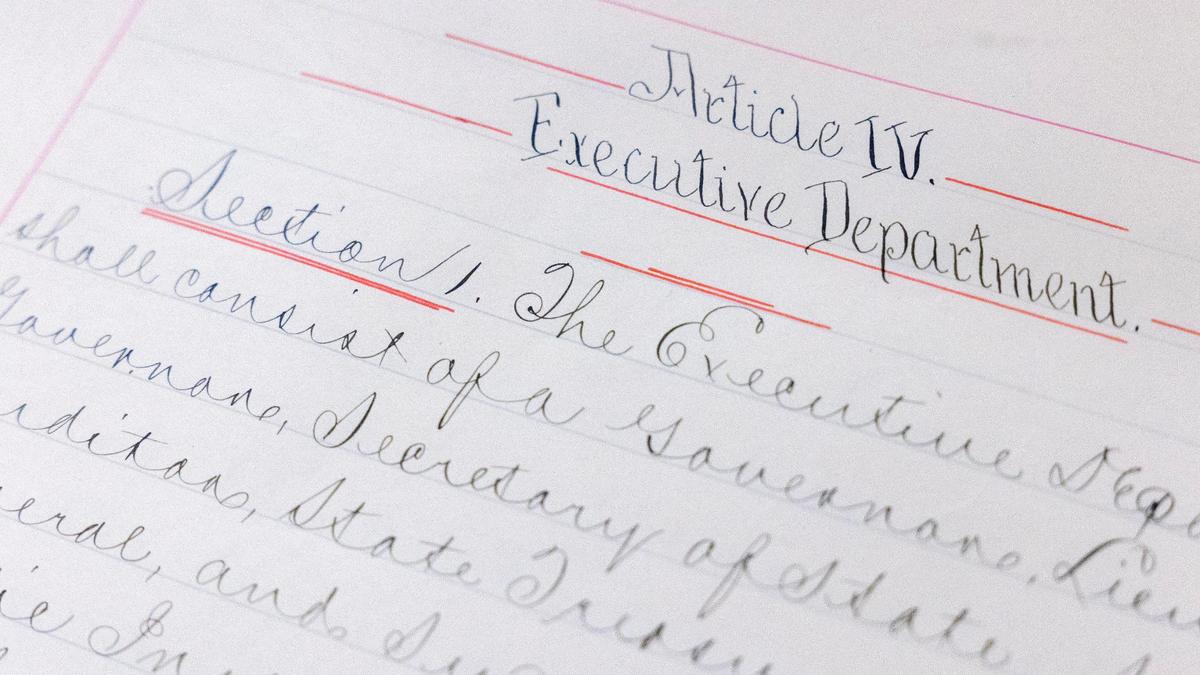 Article IV.
Executive Department.
Section 1. The Executive Dep
shall consist of a Governor, Lieu
Governor, Secretary of State
uditor, State Treasu
eral, and Su
lic In